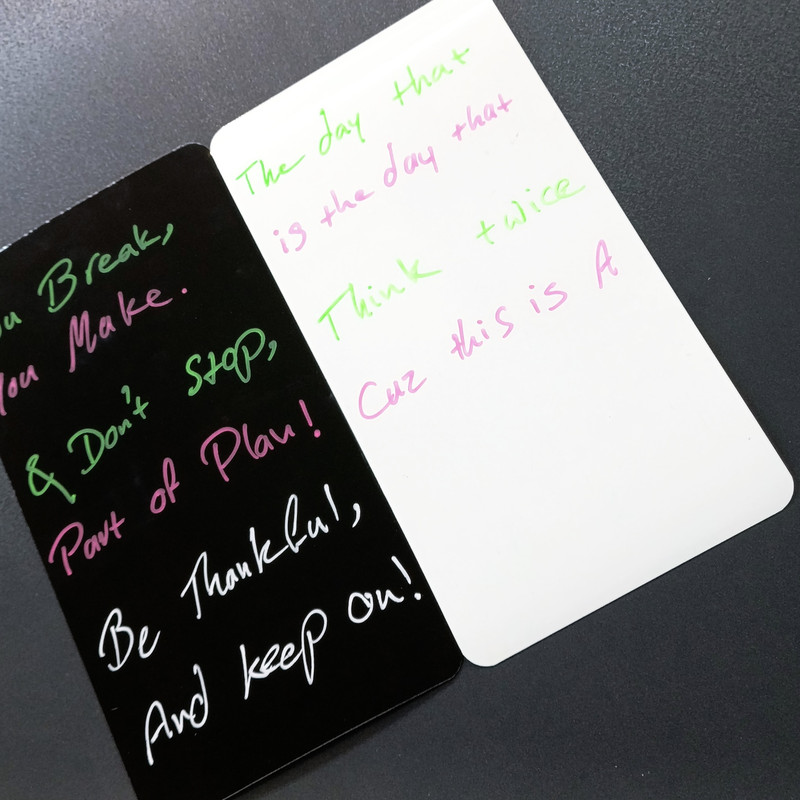 The day that
ou Break,
is the day that
You Make.
Think twice
& Don't Stop,
Cuz this is A
Part of Plan!
Be Thankful,
And keep on!